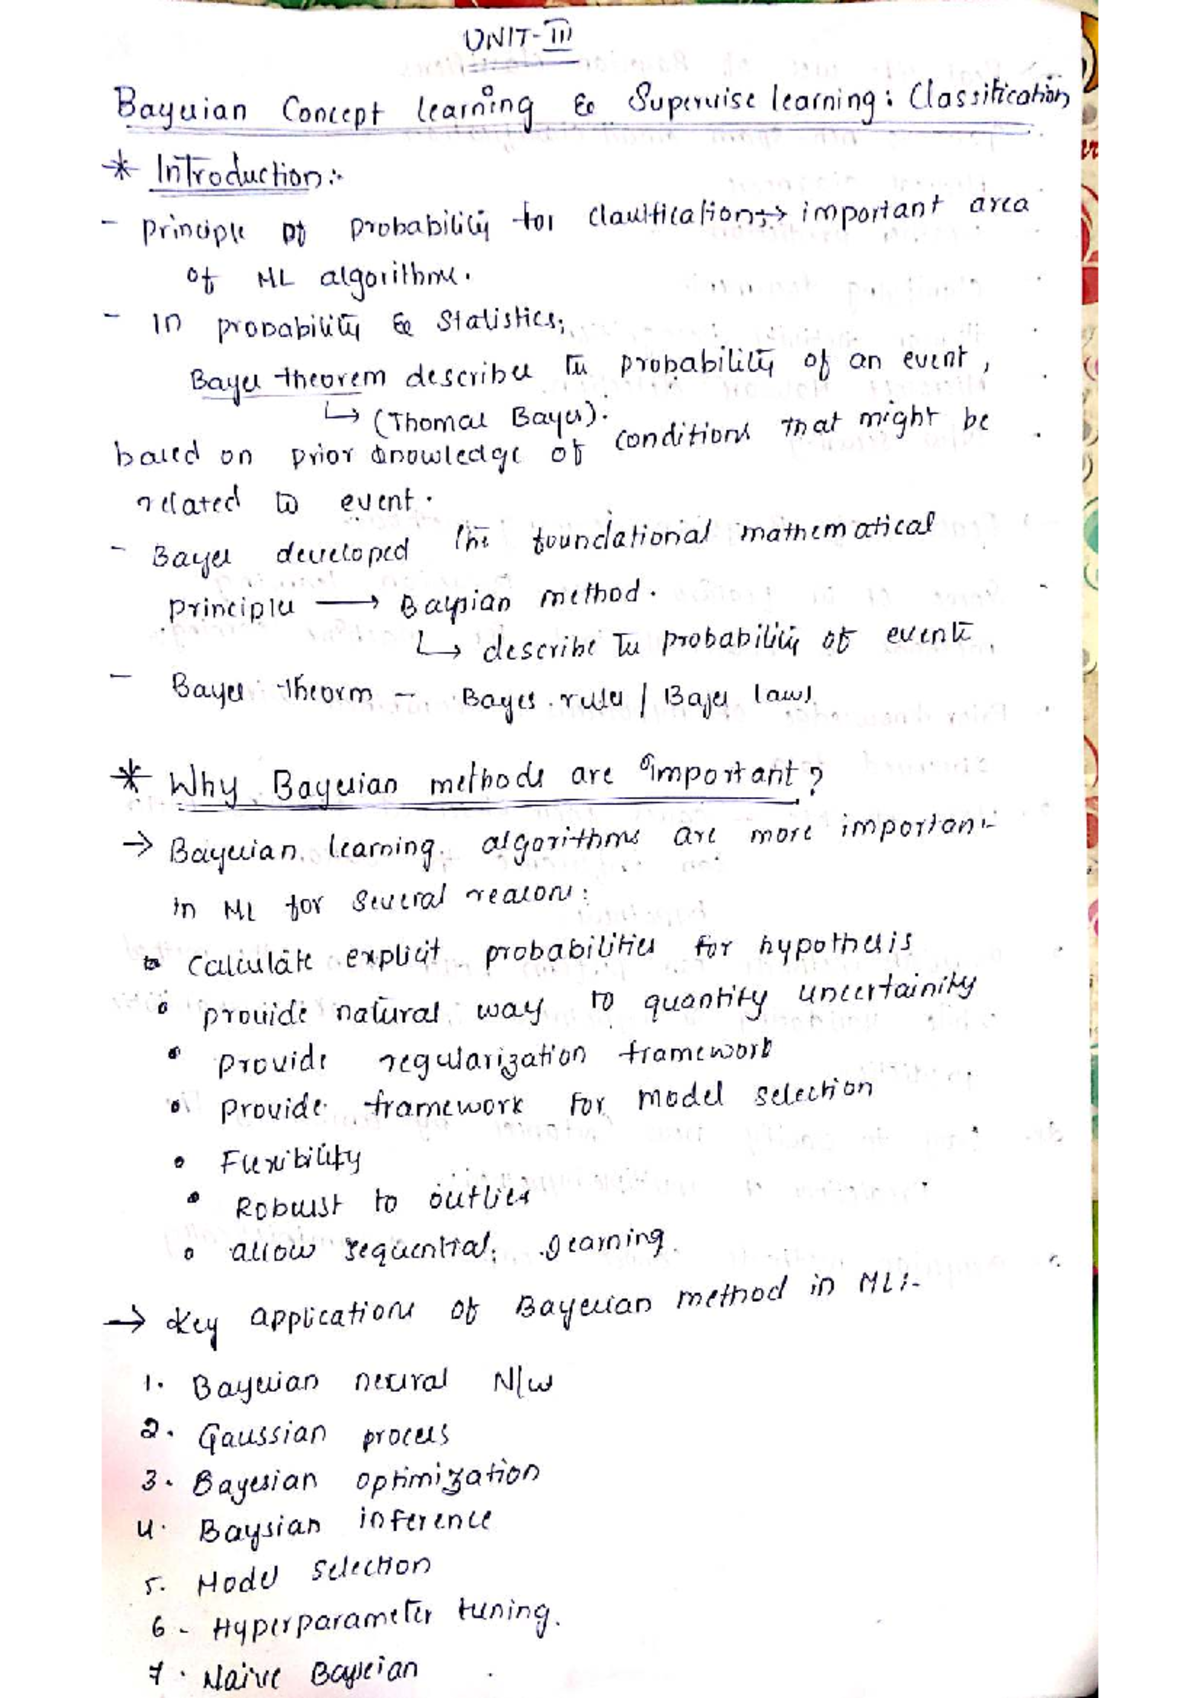 UNIT-III
Bayesian Concept learning & Supervise learning: Classification
* Introduction:-
- principle of probability for classification → important area
of ML algorithms.
- In probability & Statistics,
Bayes theorem describes the probability of an event,
↳ (Thomas Bayes).
based on prior knowledge of conditions that might be
related to event.
- Bayes developed the foundational mathematical
principles → Baysian method.
↳ describe the probability of events
- Bayes theorm - Bayes rules / Bayes laws
* Why Bayesian methods are important?
→ Bayesian learning algorithms are more important
in ML for several reasons:
Calculate explicit probabilities for hypothesis
• provide natural way to quantity uncertainity
• Provide regularization framework
• Provide framework for model selection
• Flexibility
• Robust to outlies
• allow sequential learning.
→ Key applications of Bayesian method in ML:-
1. Bayesian neural N/w
2. Gaussian process
3. Bayesian optimization
4. Baysian inference
5. Model selection
6 - Hyperparameter tuning.
7. Naive Baysian